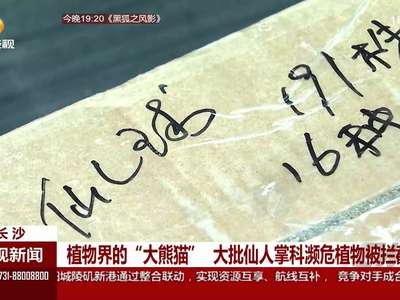 今晚19:20《黑狐之风影》
视
191株
16种
长沙
视新闻
植物界的“大熊猫” 大批仙人掌科濒危植物被拦
731-88008800
城陵矶新港通过整合联动，实现资源互享、航线互补，竞争对手成合